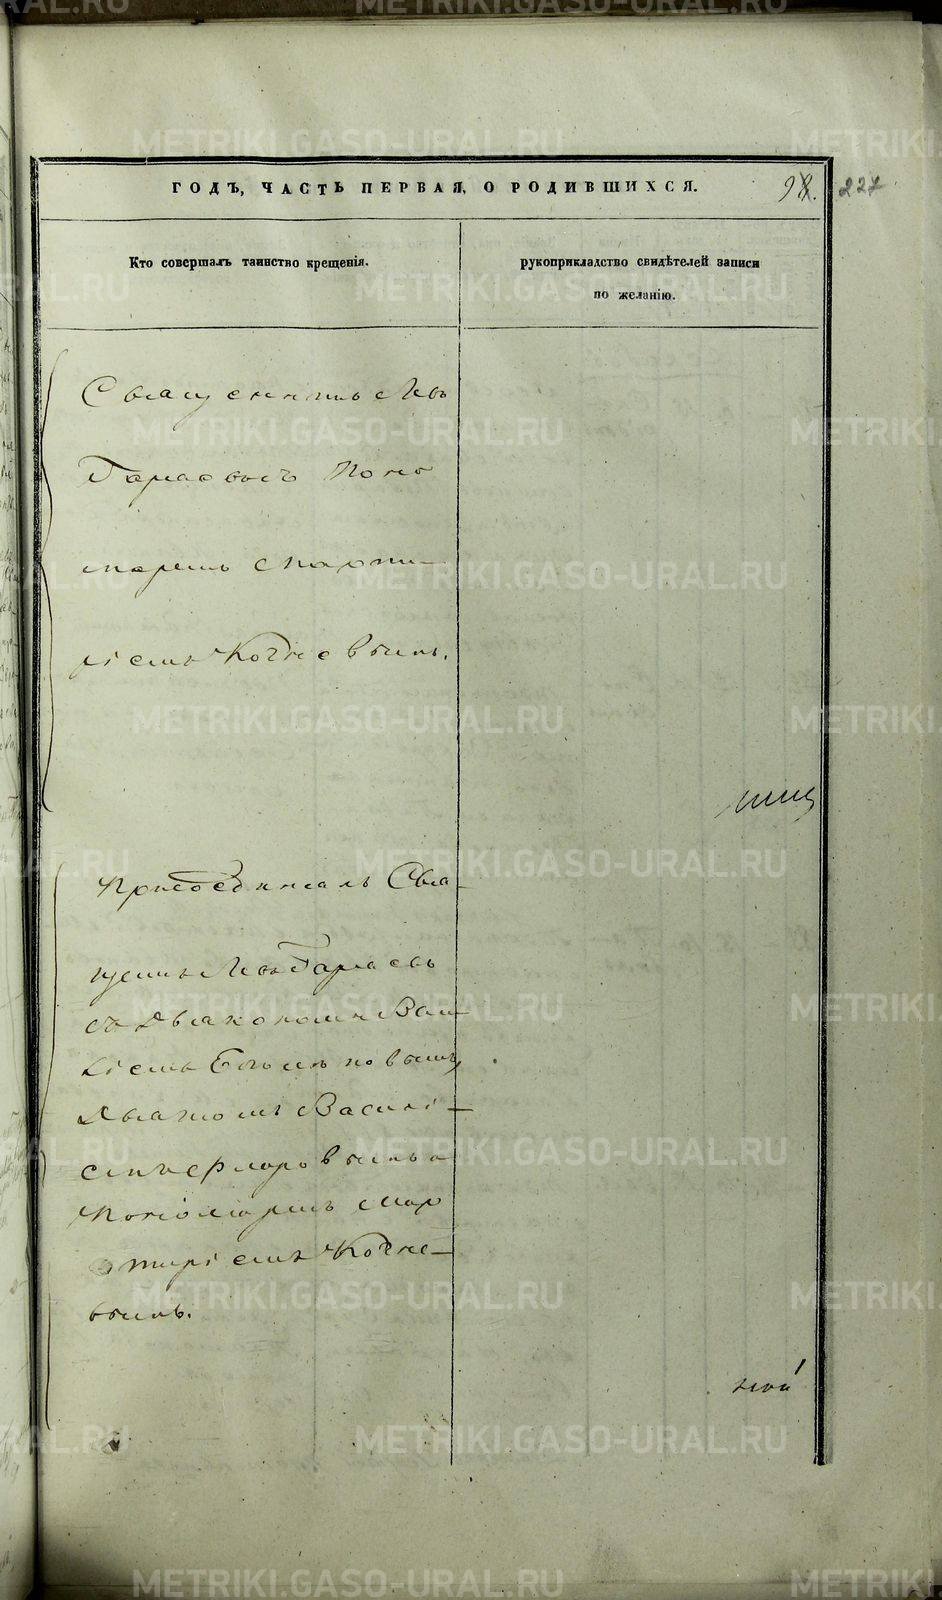 ГОДЪ, ЧАСТЬ ПЕРВАЯ, О РОДИВШИХСЯ.
98. 227
Кто совершалъ таинство крещенія.
рукоприкладство свидѣтелей записи
по желанію.
Священникъ Левъ
Тарасовъ съ Поно
маремъ Марти
ріемъ Кочневымъ.
Присоединялъ Свя-
щенникъ Левъ Тарасовъ
съ Дьякономъ Васи-
ліемъ Богомоловымъ,
Дьячкомъ Василі-
емъ Флоровымъ и
Пономаремъ Мар
тиріемъ Кочне-
вымъ.
METRIKI.GASO-URAL.RU